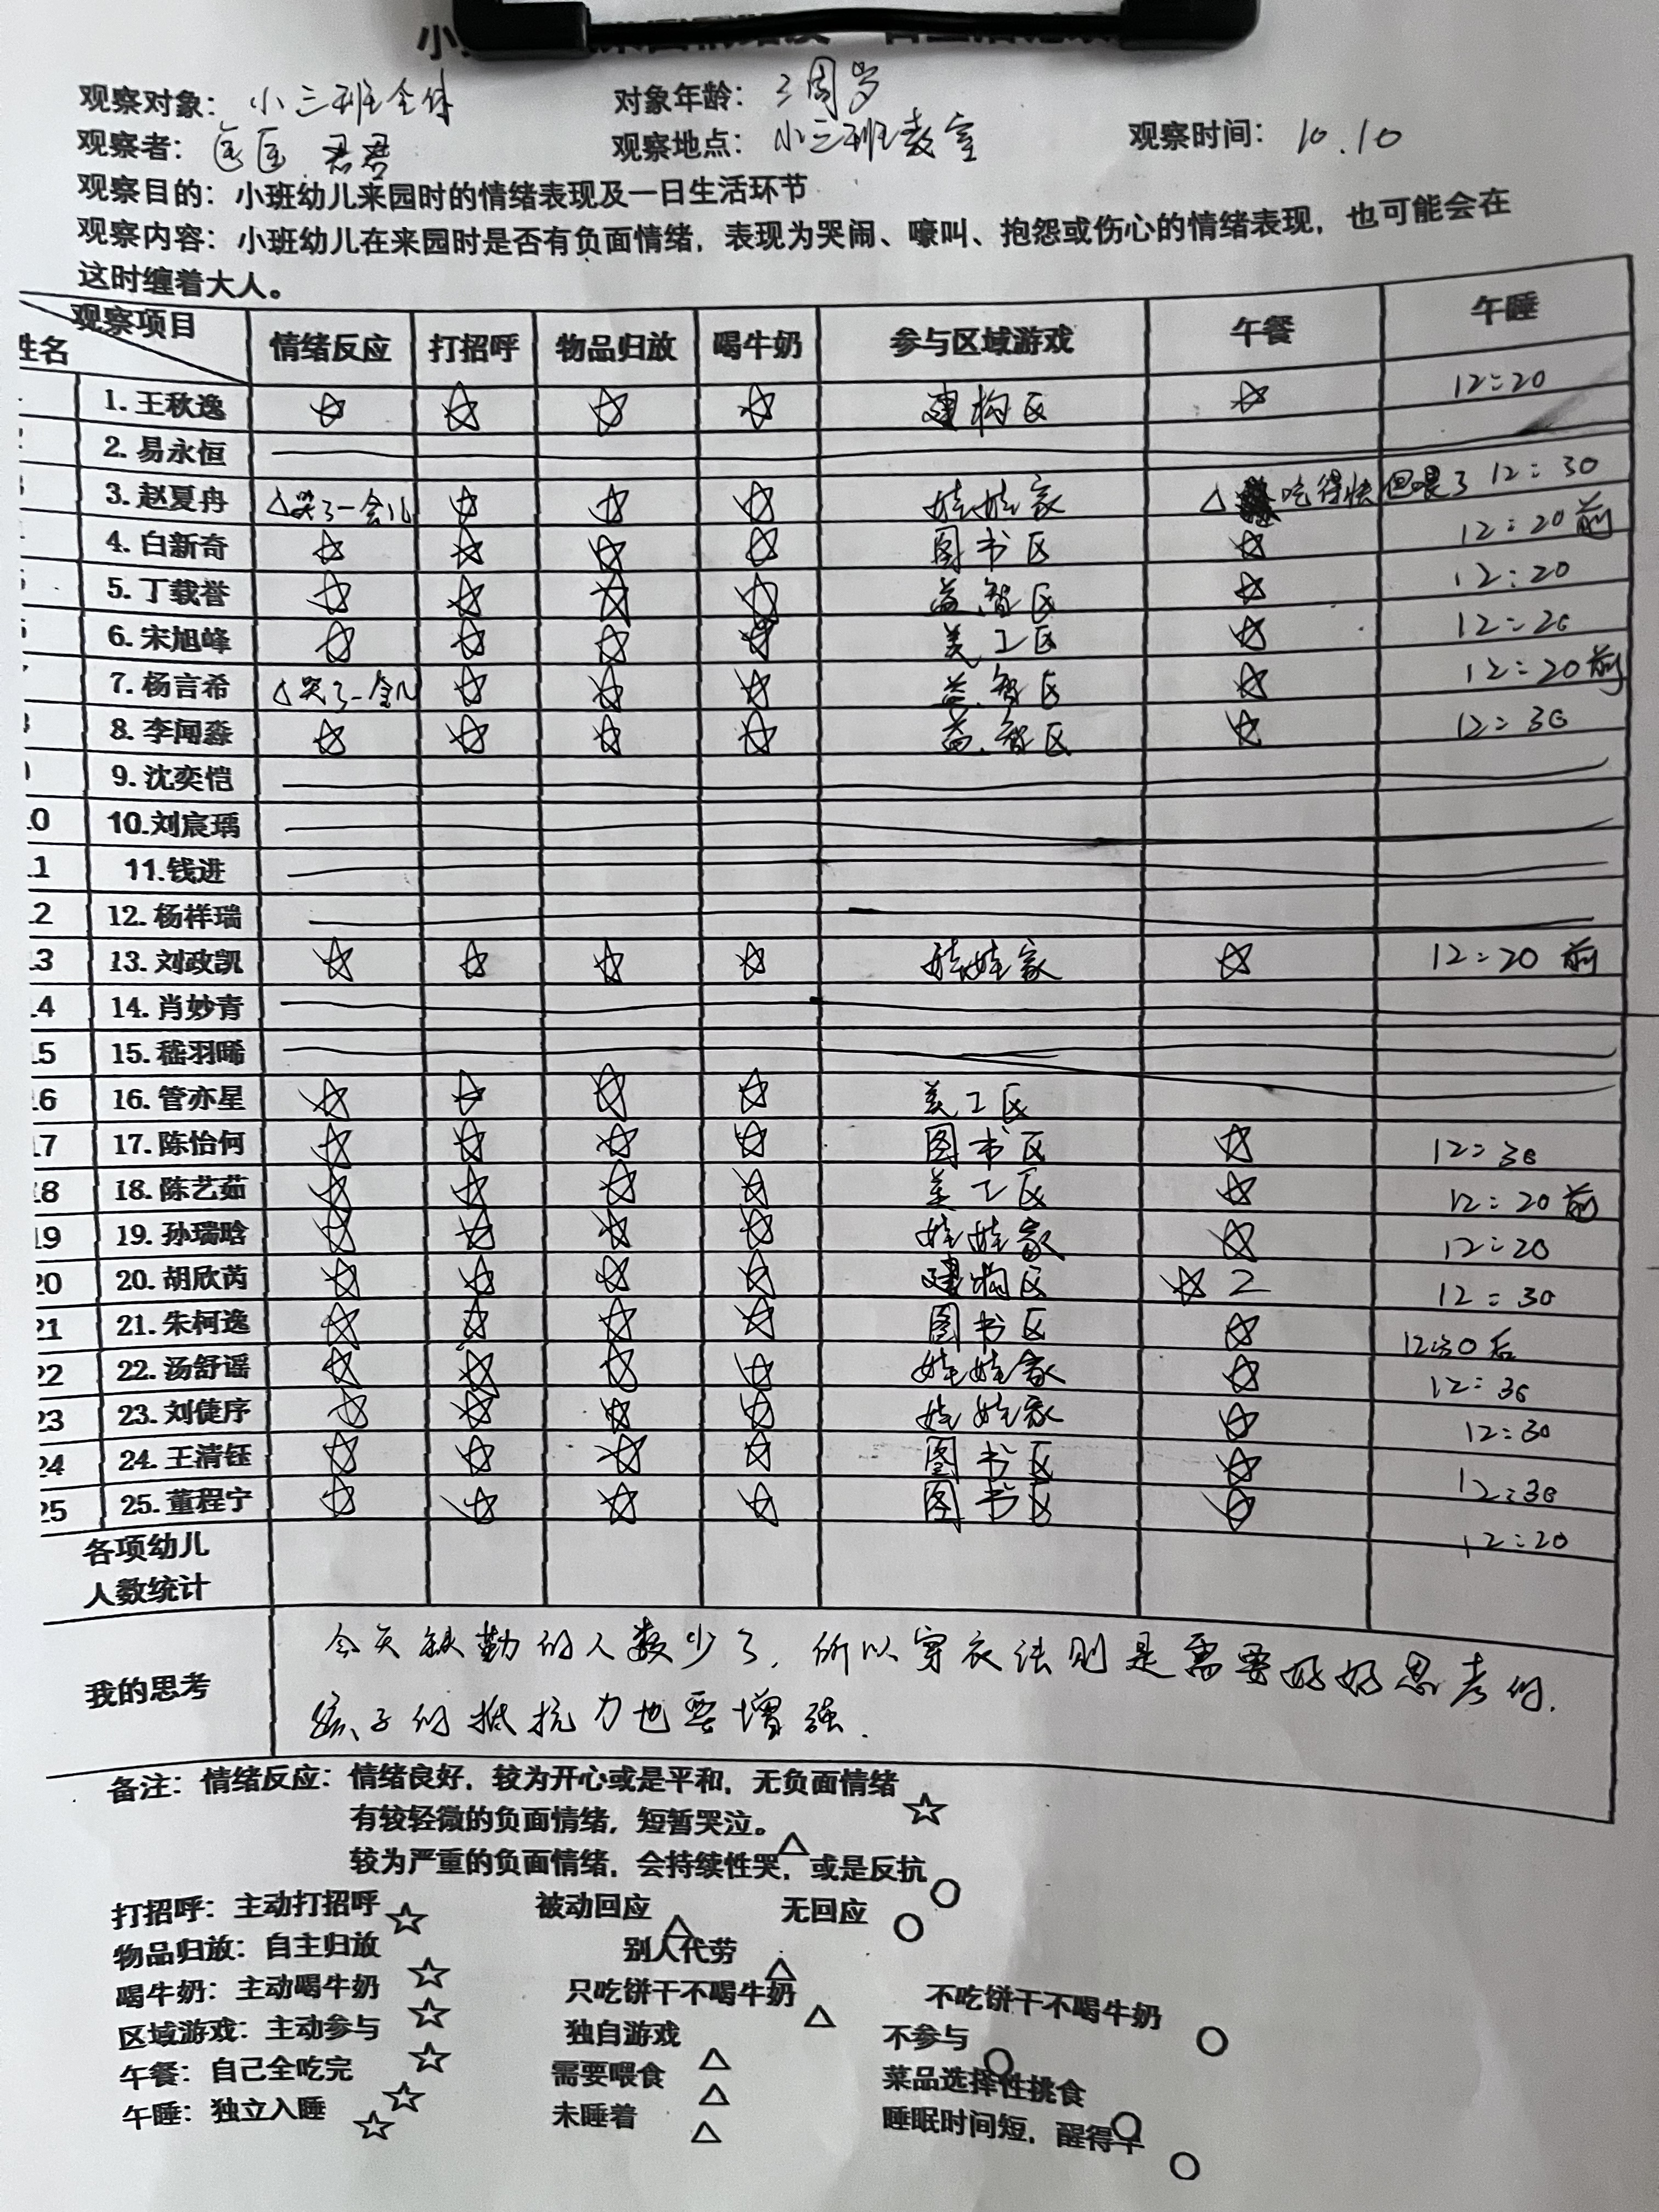 观察对象：小三班全体 对象年龄：3周岁
观察者：匡匡 君君 观察地点：小三班教室 观察时间：10.10
观察目的：小班幼儿来园时的情绪表现及一日生活环节
观察内容：小班幼儿在来园时是否有负面情绪，表现为哭闹、嚎叫、抱怨或伤心的情绪表现，也可能会在
这时缠着大人。
观察项目
姓名 情绪反应 打招呼 物品归放 喝牛奶 参与区域游戏 午餐 午睡
1.王秋逸 ☆ ☆ ☆ ☆ 建构区 ☆ 12:20
2.易永恒
3.赵夏冉 △哭了一会儿 ☆ ☆ ☆ 娃娃家 △ 吃得快但喂了 12:30
4.白新奇 ☆ ☆ ☆ ☆ 图书区 ☆ 12:20前
5.丁载誉 ☆ ☆ ☆ ☆ 益智区 ☆ 12:20
6.宋旭峰 ☆ ☆ ☆ ☆ 美工区 ☆ 12:20
7.杨言希 △哭了一会儿 ☆ ☆ ☆ 益智区 ☆ 12:20前
8.李闻淼 ☆ ☆ ☆ ☆ 益智区 ☆ 12:30
9.沈奕恺
10 10.刘宸瑀
11 11.钱进
12 12.杨祥瑞
13 13.刘政凯 ☆ ☆ ☆ ☆ 娃娃家 ☆ 12:20前
14 14.肖妙青
15 15.嵇羽晞
16 16.管亦星 ☆ ☆ ☆ ☆ 美工区
17 17.陈怡何 ☆ ☆ ☆ ☆ 图书区 ☆ 12:30
18 18.陈艺茹 ☆ ☆ ☆ ☆ 美工区 ☆ 12:20前
19 19.孙瑞晗 ☆ ☆ ☆ ☆ 娃娃家 ☆ 12:20
20 20.胡欣芮 ☆ ☆ ☆ ☆ 建构区 ☆ 2 12:30
21 21.朱柯逸 ☆ ☆ ☆ ☆ 图书区 ☆ 12:30后
22 22.汤舒谣 ☆ ☆ ☆ ☆ 娃娃家 ☆ 12:30
23 23.刘倢序 ☆ ☆ ☆ ☆ 娃娃家 ☆ 12:30
24 24.王清钰 ☆ ☆ ☆ ☆ 图书区 ☆ 12:30
25 25.董程宁 ☆ ☆ ☆ ☆ 图书区 ☆ 12:20
各项幼儿
人数统计
我的思考
今天缺勤的人数少了，所以穿衣法则是需要好好思考的.
孩子们抵抗力也要增强.
备注：情绪反应：情绪良好，较为开心或是平和，无负面情绪 ☆
有较轻微的负面情绪，短暂哭泣。△
较为严重的负面情绪，会持续性哭，或是反抗 ○
打招呼：主动打招呼 ☆ 被动回应 △ 无回应 ○
物品归放：自主归放 ☆ 别人代劳 △
喝牛奶：主动喝牛奶 ☆ 只吃饼干不喝牛奶 △ 不吃饼干不喝牛奶 ○
区域游戏：主动参与 ☆ 独自游戏 △ 不参与 ○
午餐：自己全吃完 ☆ 需要喂食 △ 菜品选择性挑食 ○
午睡：独立入睡 ☆ 未睡着 △ 睡眠时间短，醒得早 ○